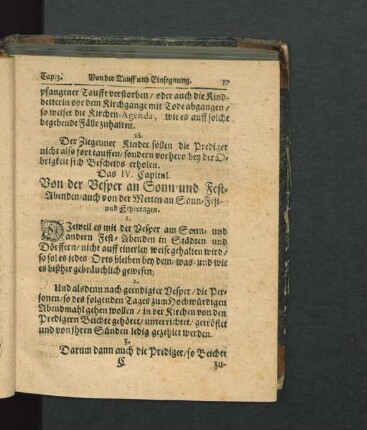 Cap. 3. Von der Tauff und Einsegnung. 17
pfangener Tauffe verstorben / oder auch die Kind-
betterin vor dem Kirchgange mit Tode abgangen /
so weiset die Kirchen-Agenda, wie es auff solche
begebende Fälle zuhalten.
18.
Der Ziegeuner Kinder sollen die Prediger
nicht also fort tauffen / sondern vorhero bey der O-
brigkeit sich Bescheids erholen.
Das IV. Capitul.
Von der Vesper an Sonn- und Fest-
Abenden / auch von der Metten an Sonn- Fest-
und Feyrtagen.
1.
DJeweil es mit der Vesper am Sonn- und
andern Fest-Abenden in Städten und
Dörffern / nicht auff einerley weise gehalten wird /
so sol es jedes Orts bleiben bey dem / was und wie
es bißher gebräuchlich gewesen;
2.
Und als denn nach geendigter Vesper / die Per-
sonen / so des folgenden Tages zum Hochwürdigen
Abendmahl gehen wollen / in der Kirchen von den
Predigern Beichte gehöret / unterrichtet / getröstet
und von jhren Sünden ledig gezehlet werden.
3.
Darum dann auch die Prediger / so Beichte
C zu-